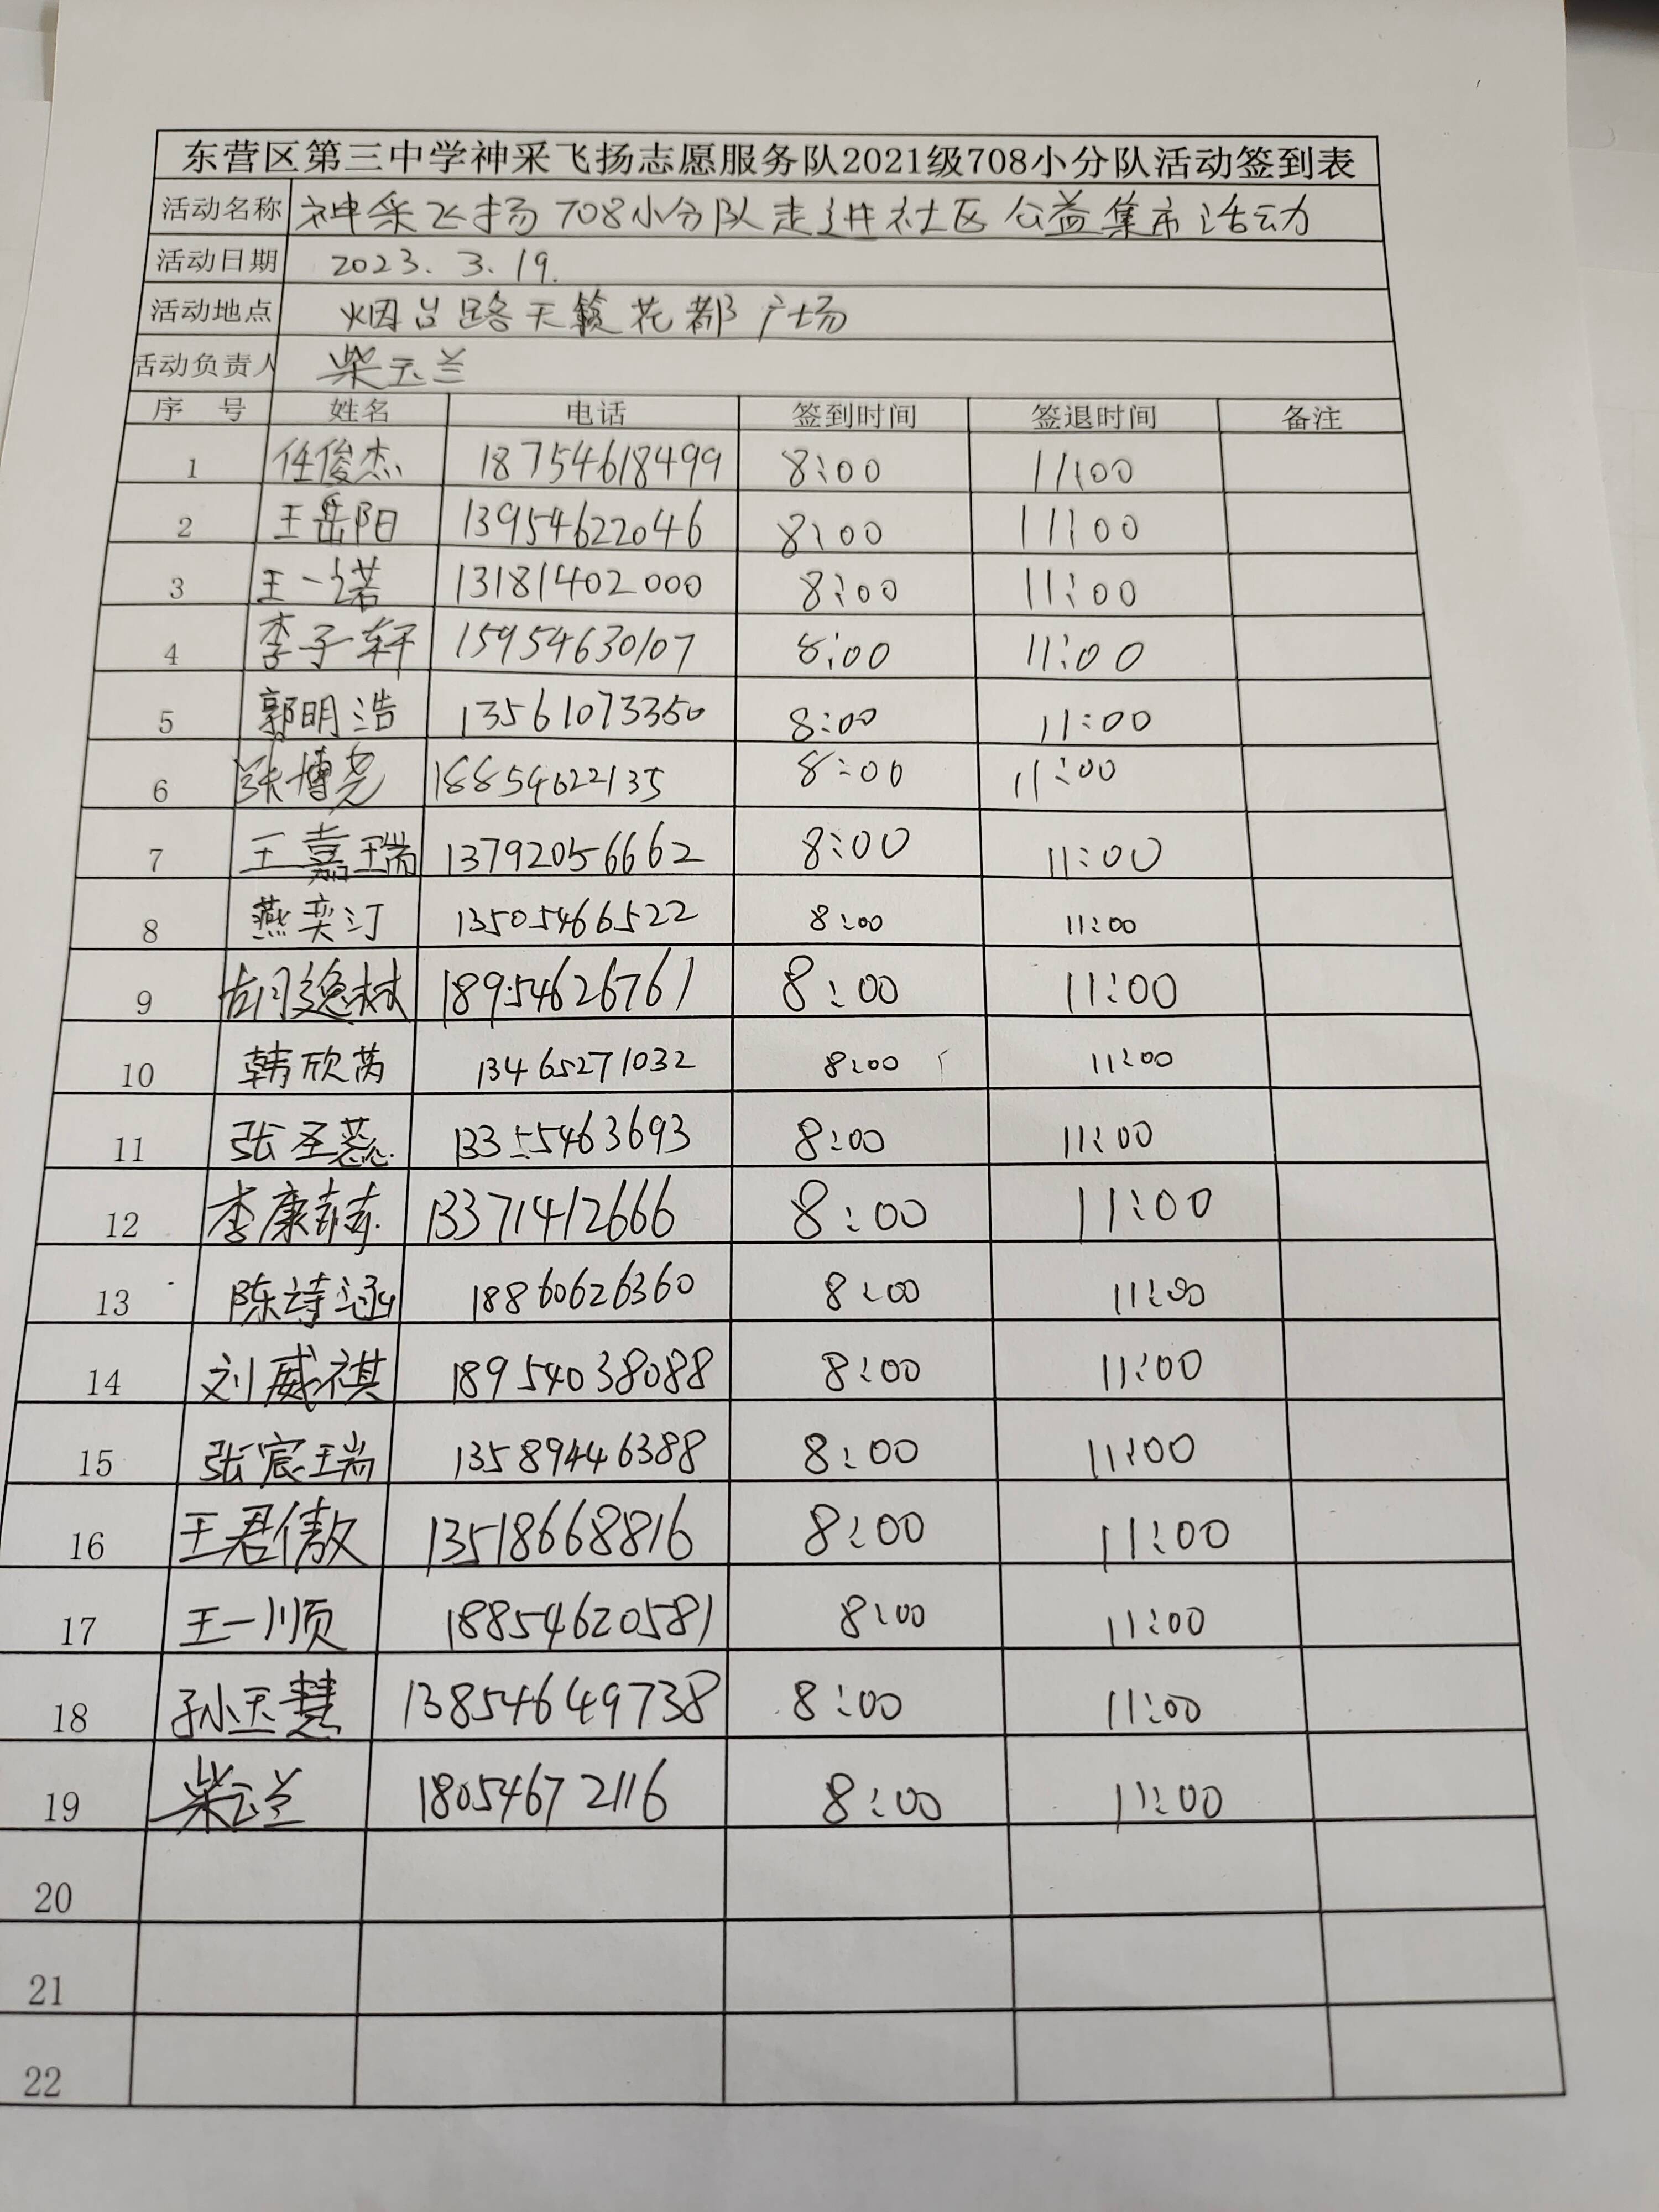 东营区第三中学神采飞扬志愿服务队2021级708小分队活动签到表
活动名称 神采飞扬708小分队走进社区公益集市活动
活动日期 2023.3.19.
活动地点 烟台路天籁花都广场
活动负责人 柴玉兰
序 号 姓名 电话 签到时间 签退时间 备注
1 任俊杰 18754618499 8:00 11:00
2 王岳阳 13954622046 8:00 11:00
3 王一诺 13181402000 8:00 11:00
4 李子轩 15954630107 8:00 11:00
5 郭明浩 13561073350 8:00 11:00
6 张博尧 18854622135 8:00 11:00
7 王嘉瑞 13792056662 8:00 11:00
8 燕奕汀 13505466522 8:00 11:00
9 胡逸林 18954626761 8:00 11:00
10 韩欣芮 13465271032 8:00 11:00
11 张圣蕊 13355463693 8:00 11:00
12 李康 13371412666 8:00 11:00
13 陈诗涵 18860626360 8:00 11:00
14 刘威祺 18954038088 8:00 11:00
15 张宸瑞 13589446388 8:00 11:00
16 王君傲 13518668816 8:00 11:00
17 王一顺 18854620581 8:00 11:00
18 孙玉慧 13854649738 8:00 11:00
19 柴玉兰 18054672116 8:00 11:00
20
21
22